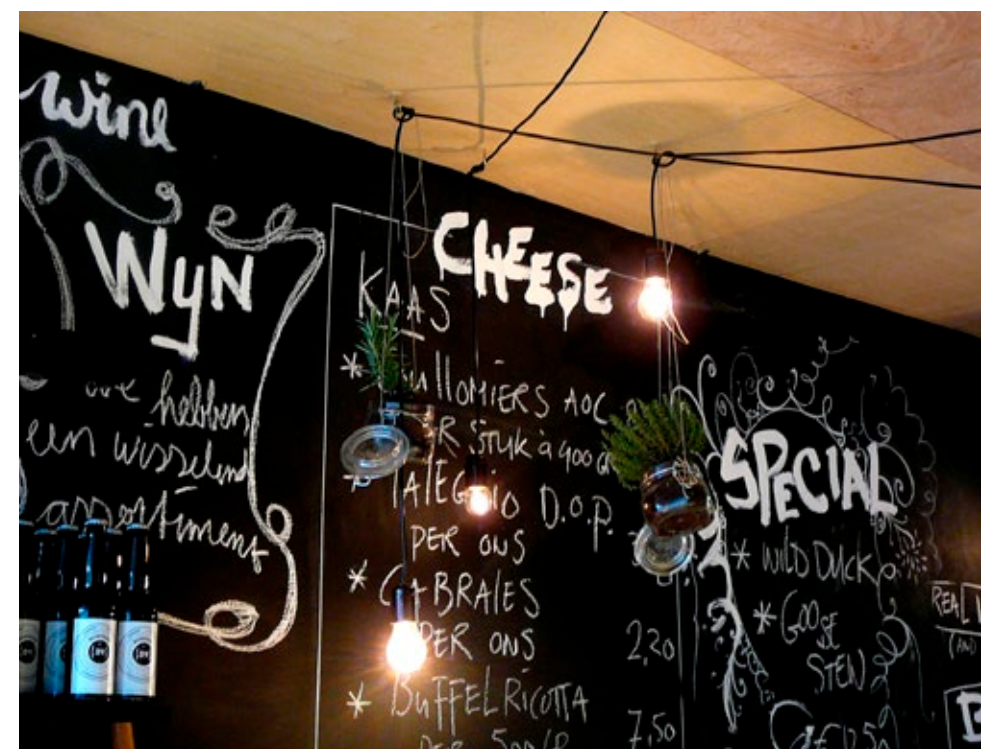 wine
WyN
we hebben
een wisselend
assortiment
CHEESE
KAAS
* AOC
STUK à 400 G
TALEGGIO D.O.P.
PER ONS
* CABRALES
PER ONS 2,20
* BUFFEL RICOTTA 7,50
PER
SPECIAL
* WILD DUCK
* GOOSE
STEN
REAL
(AND